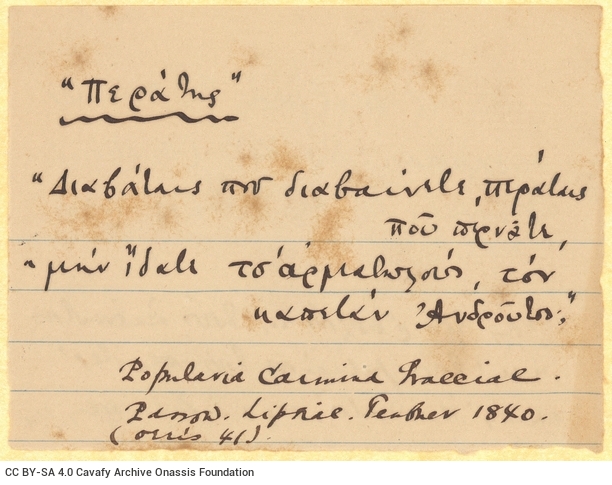 "Περάτης"
"Διαβάταις που διαβαίνετε, περάταις
πού περνάτε,
"μην ἴδατε τσ' ἀρματωλούς, τόν
καπετάν Ἀνδροῦτσο;"
Popularia Carmina Graeciae.
Passow. Lipsiae. Teubner 1840.
(σελίς 41).
CC BY-SA 4.0 Cavafy Archive Onassis Foundation